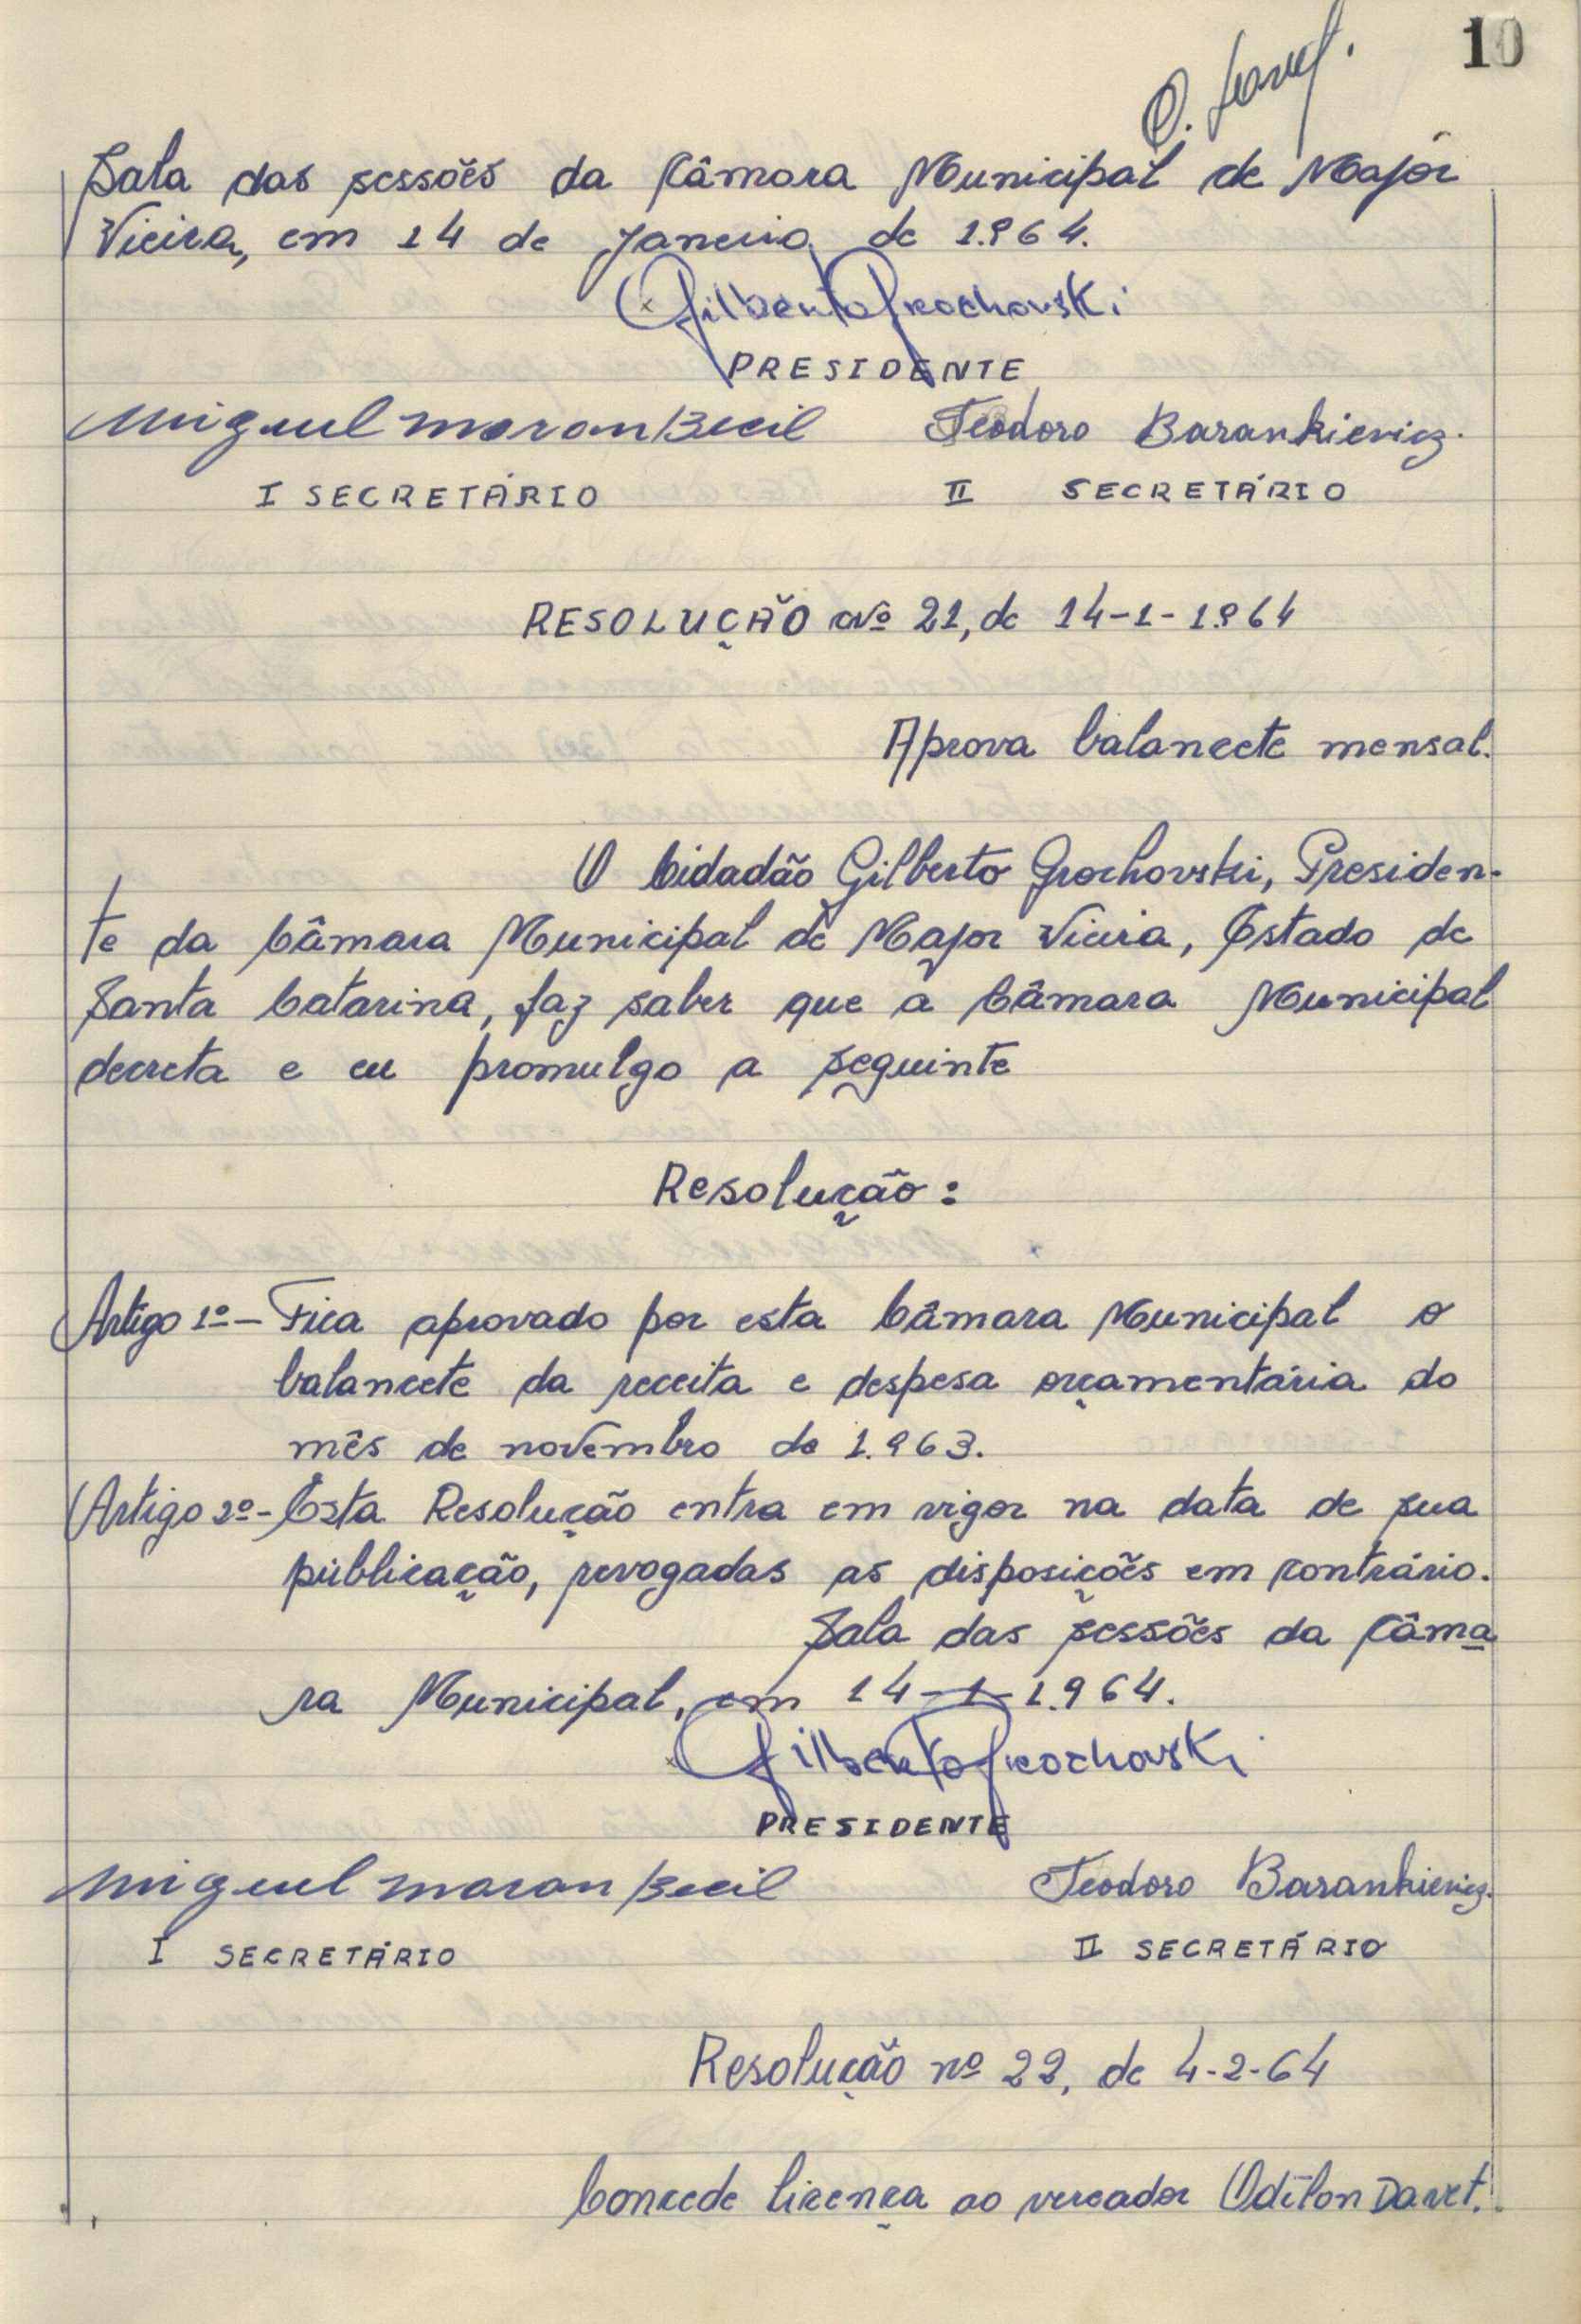 10
O. Davet.
Sala das sessões da Câmara Municipal de Major
Vieira, em 14 de Janeiro de 1.964.
Gilberto Grochovski
PRESIDENTE
Miguel Maron Becil Teodoro Barankievicz.
I SECRETÁRIO II SECRETÁRIO
RESOLUÇÃO Nº 21, de 14-1-1.964
Aprova balancete mensal.
O Cidadão Gilberto Grochovski, Presiden-
te da Câmara Municipal de Major Vieira, Estado de
Santa Catarina, faz saber que a Câmara Municipal
decreta e eu promulgo a seguinte
Resolução:
Artigo 1º - Fica aprovado por esta Câmara Municipal o
balancete da receita e despesa orçamentária do
mês de novembro de 1.963.
Artigo 2º - Esta Resolução entra em vigor na data de sua
públicação, revogadas as disposições em contrário.
Sala das sessões da Câma
ra Municipal, em 14-1-1.964.
Gilberto Grochovski
PRESIDENTE
Miguel Maron Becil Teodoro Barankievicz.
I SECRETÁRIO II SECRETÁRIO
Resolução nº 22, de 4-2-64
Concede licença ao vereador Odilon Davet.